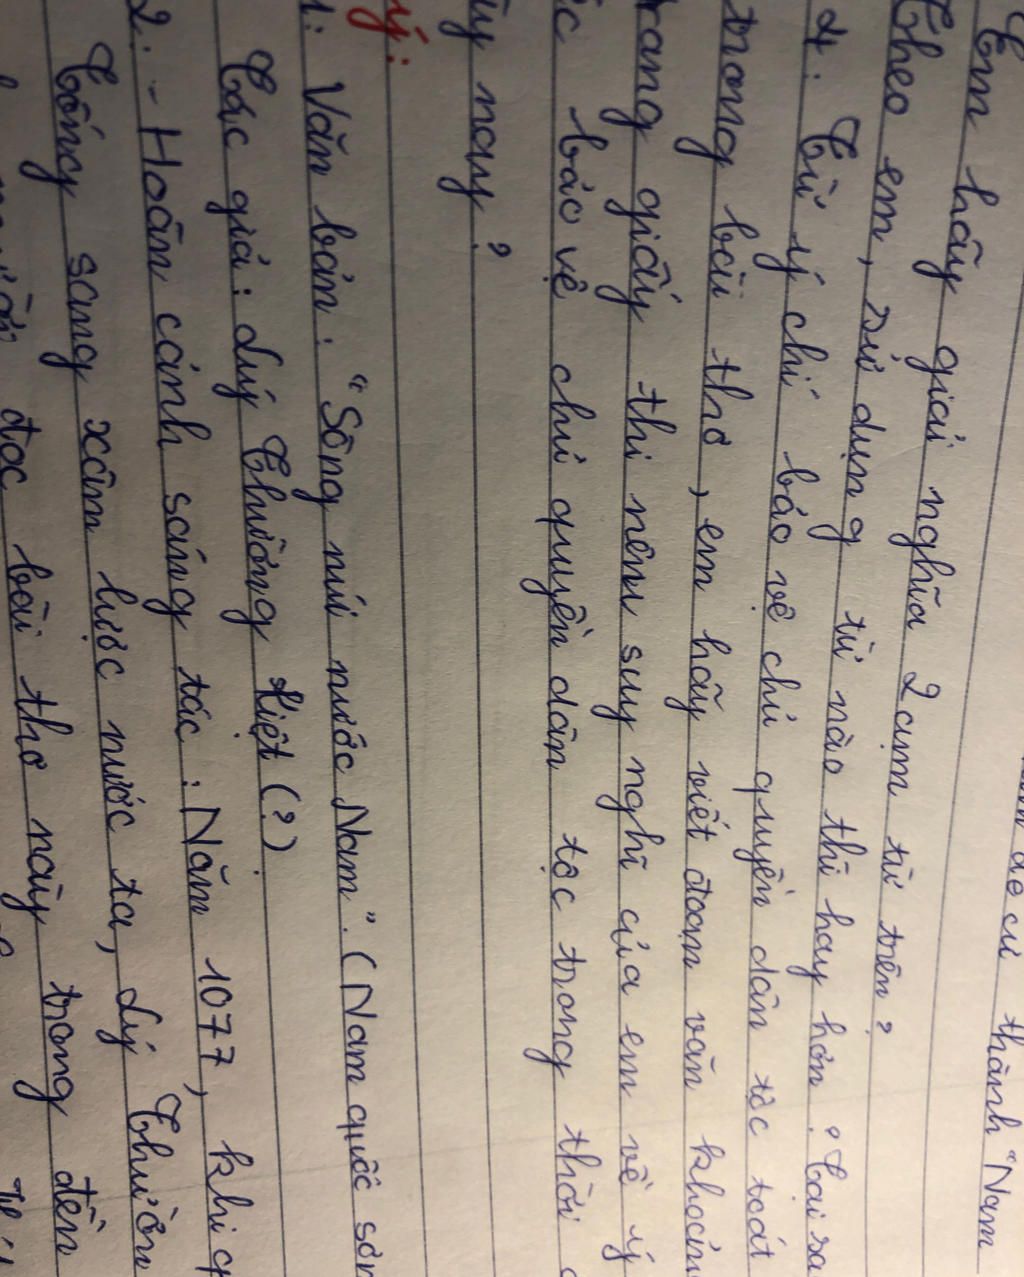 thành "Nam
Em hãy giải nghĩa 2 cụm từ trên?
Theo em, sử dụng từ nào thì hay hơn? Tại sa
4: Từ ý chí bảo vệ chủ quyền dân tộc toát
trong bài thơ, em hãy viết đoạn văn khoản
trang giấy thi nêu suy nghĩ của em về ý
bảo vệ chủ quyền dân tộc trong thời
nay?
ý:
1: Văn bản: "Sông núi nước Nam". (Nam quốc sơn
Tác giả: Lý Thường Kiệt (?)
2: - Hoàn cảnh sáng tác: Năm 1077, khi q
Tống sang xâm lược nước ta, Lý Thườn
đọc bài thơ này trong đền